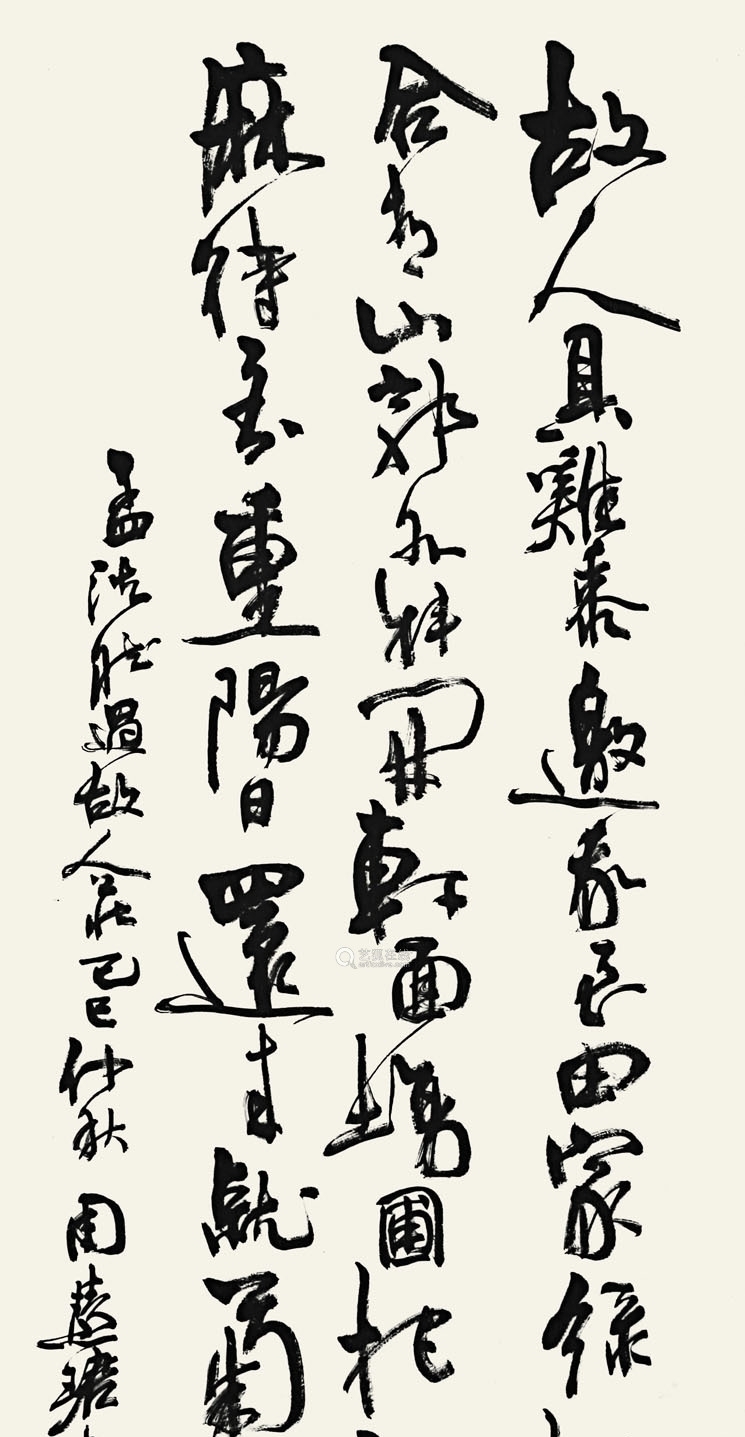 故人具雞黍邀我至田家綠
合青山郭外斜開軒面場圃把
麻待到重陽日還來就菊
孟浩然過故人莊己巳仲秋周慧珺
艺狐在线